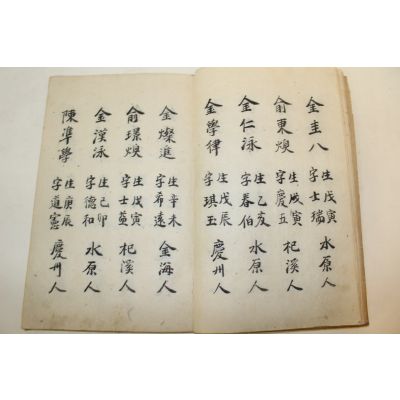 金圭八 生戊寅 字士瑞 水原人
俞東煥 生戊寅 字慶五 杞溪人
金仁泳 生乙亥 字春伯 水原人
金學律 生戊辰 字琪玉 慶州人
金燦進 生辛未 字希遠 金海人
俞璟煥 生戊寅 字士英 杞溪人
金漢泳 生己卯 字德和 水原人
陳準學 生庚辰 字道憲 慶州人